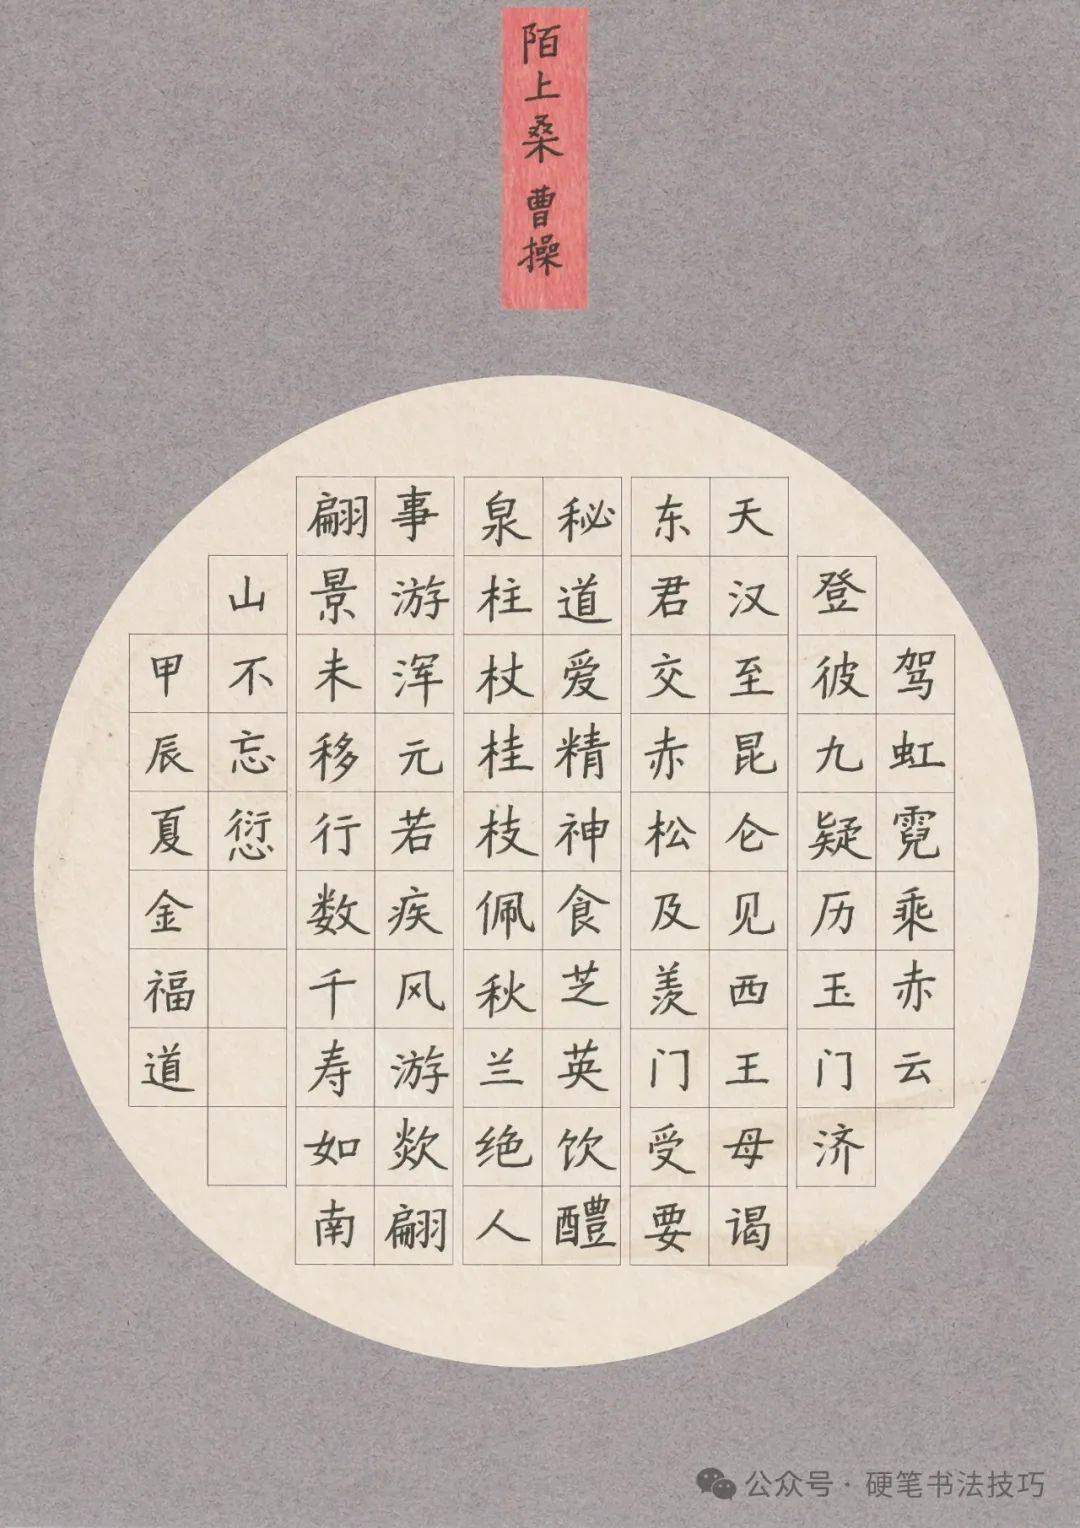 陌上桑 曹操
驾虹霓乘赤云
登彼九疑历玉门济
天汉至昆仑见西王母谒
东君交赤松及羡门受要
秘道爱精神食芝英饮醴
泉柱杖桂枝佩秋兰绝人
事游浑元若疾风游欻翩
翩景未移行数千寿如南
山不忘愆
甲辰夏金福道
公众号·硬笔书法技巧